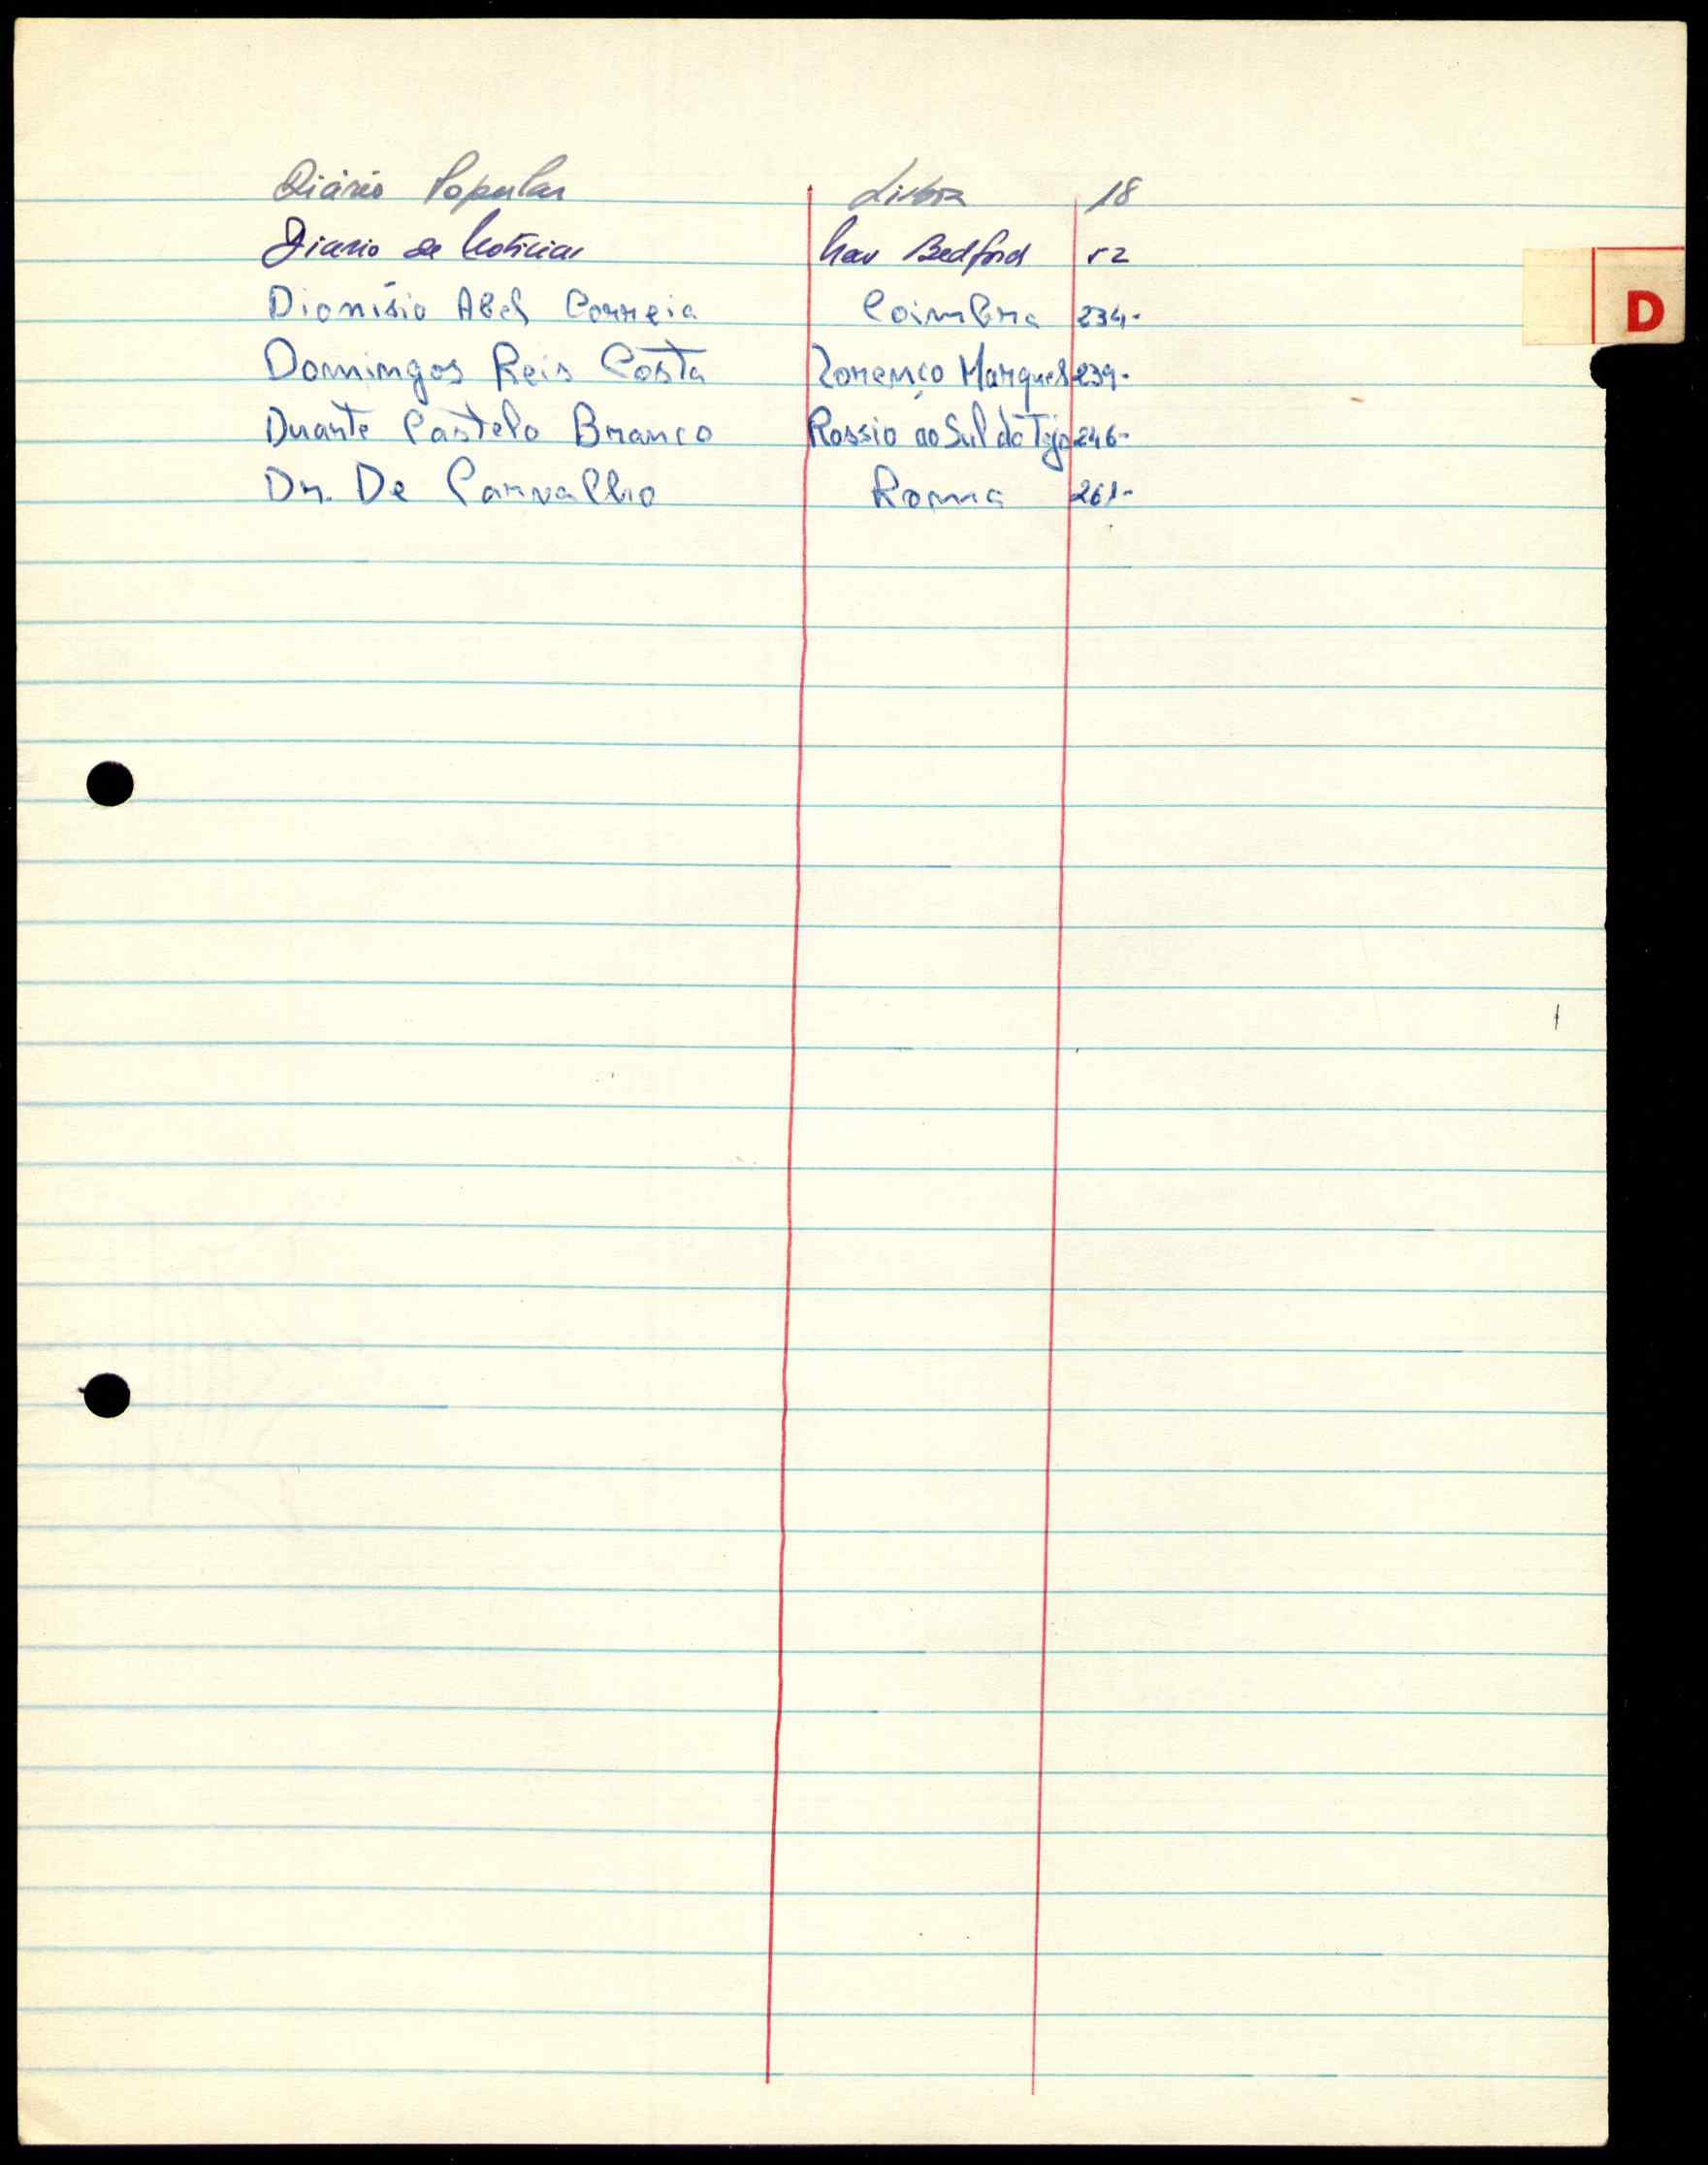 Diário Popular Lisboa 18
Diario de Noticias New Bedford 52
D
Dionísio Abel Correia Coimbra 234-
Domingos Reis Costa Lorenço Marques 239-
Duarte Castelo Branco Rossio ao Sul do Tejo 246-
Dr. De Carvalho Roma 261-